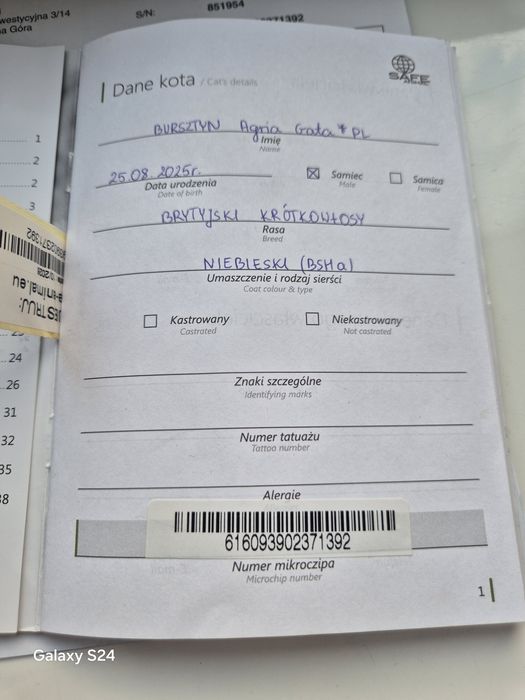 westycyjna 3/14
a Góra
S/N:
851954
371392
1
2
2
3
24
26
31
32
35
38
Dane kota / Cat's details
SAFE
BURSZTYN Agria Gata*PL
Imię
Name
25.08.2025r.
Data urodzenia
Date of birth
Samiec
Male
Samica
Female
BRYTYJSKI KRÓTKOWŁOSY
Rasa
Breed
NIEBIESKI (BSHa)
Umaszczenie i rodzaj sierści
Coat colour & type
Kastrowany
Castrated
Niekastrowany
Not castrated
Znaki szczególne
Identifying marks
Numer tatuażu
Tattoo number
Alergie
616093902371392
Numer mikroczipa
Microchip number
1
Galaxy S24